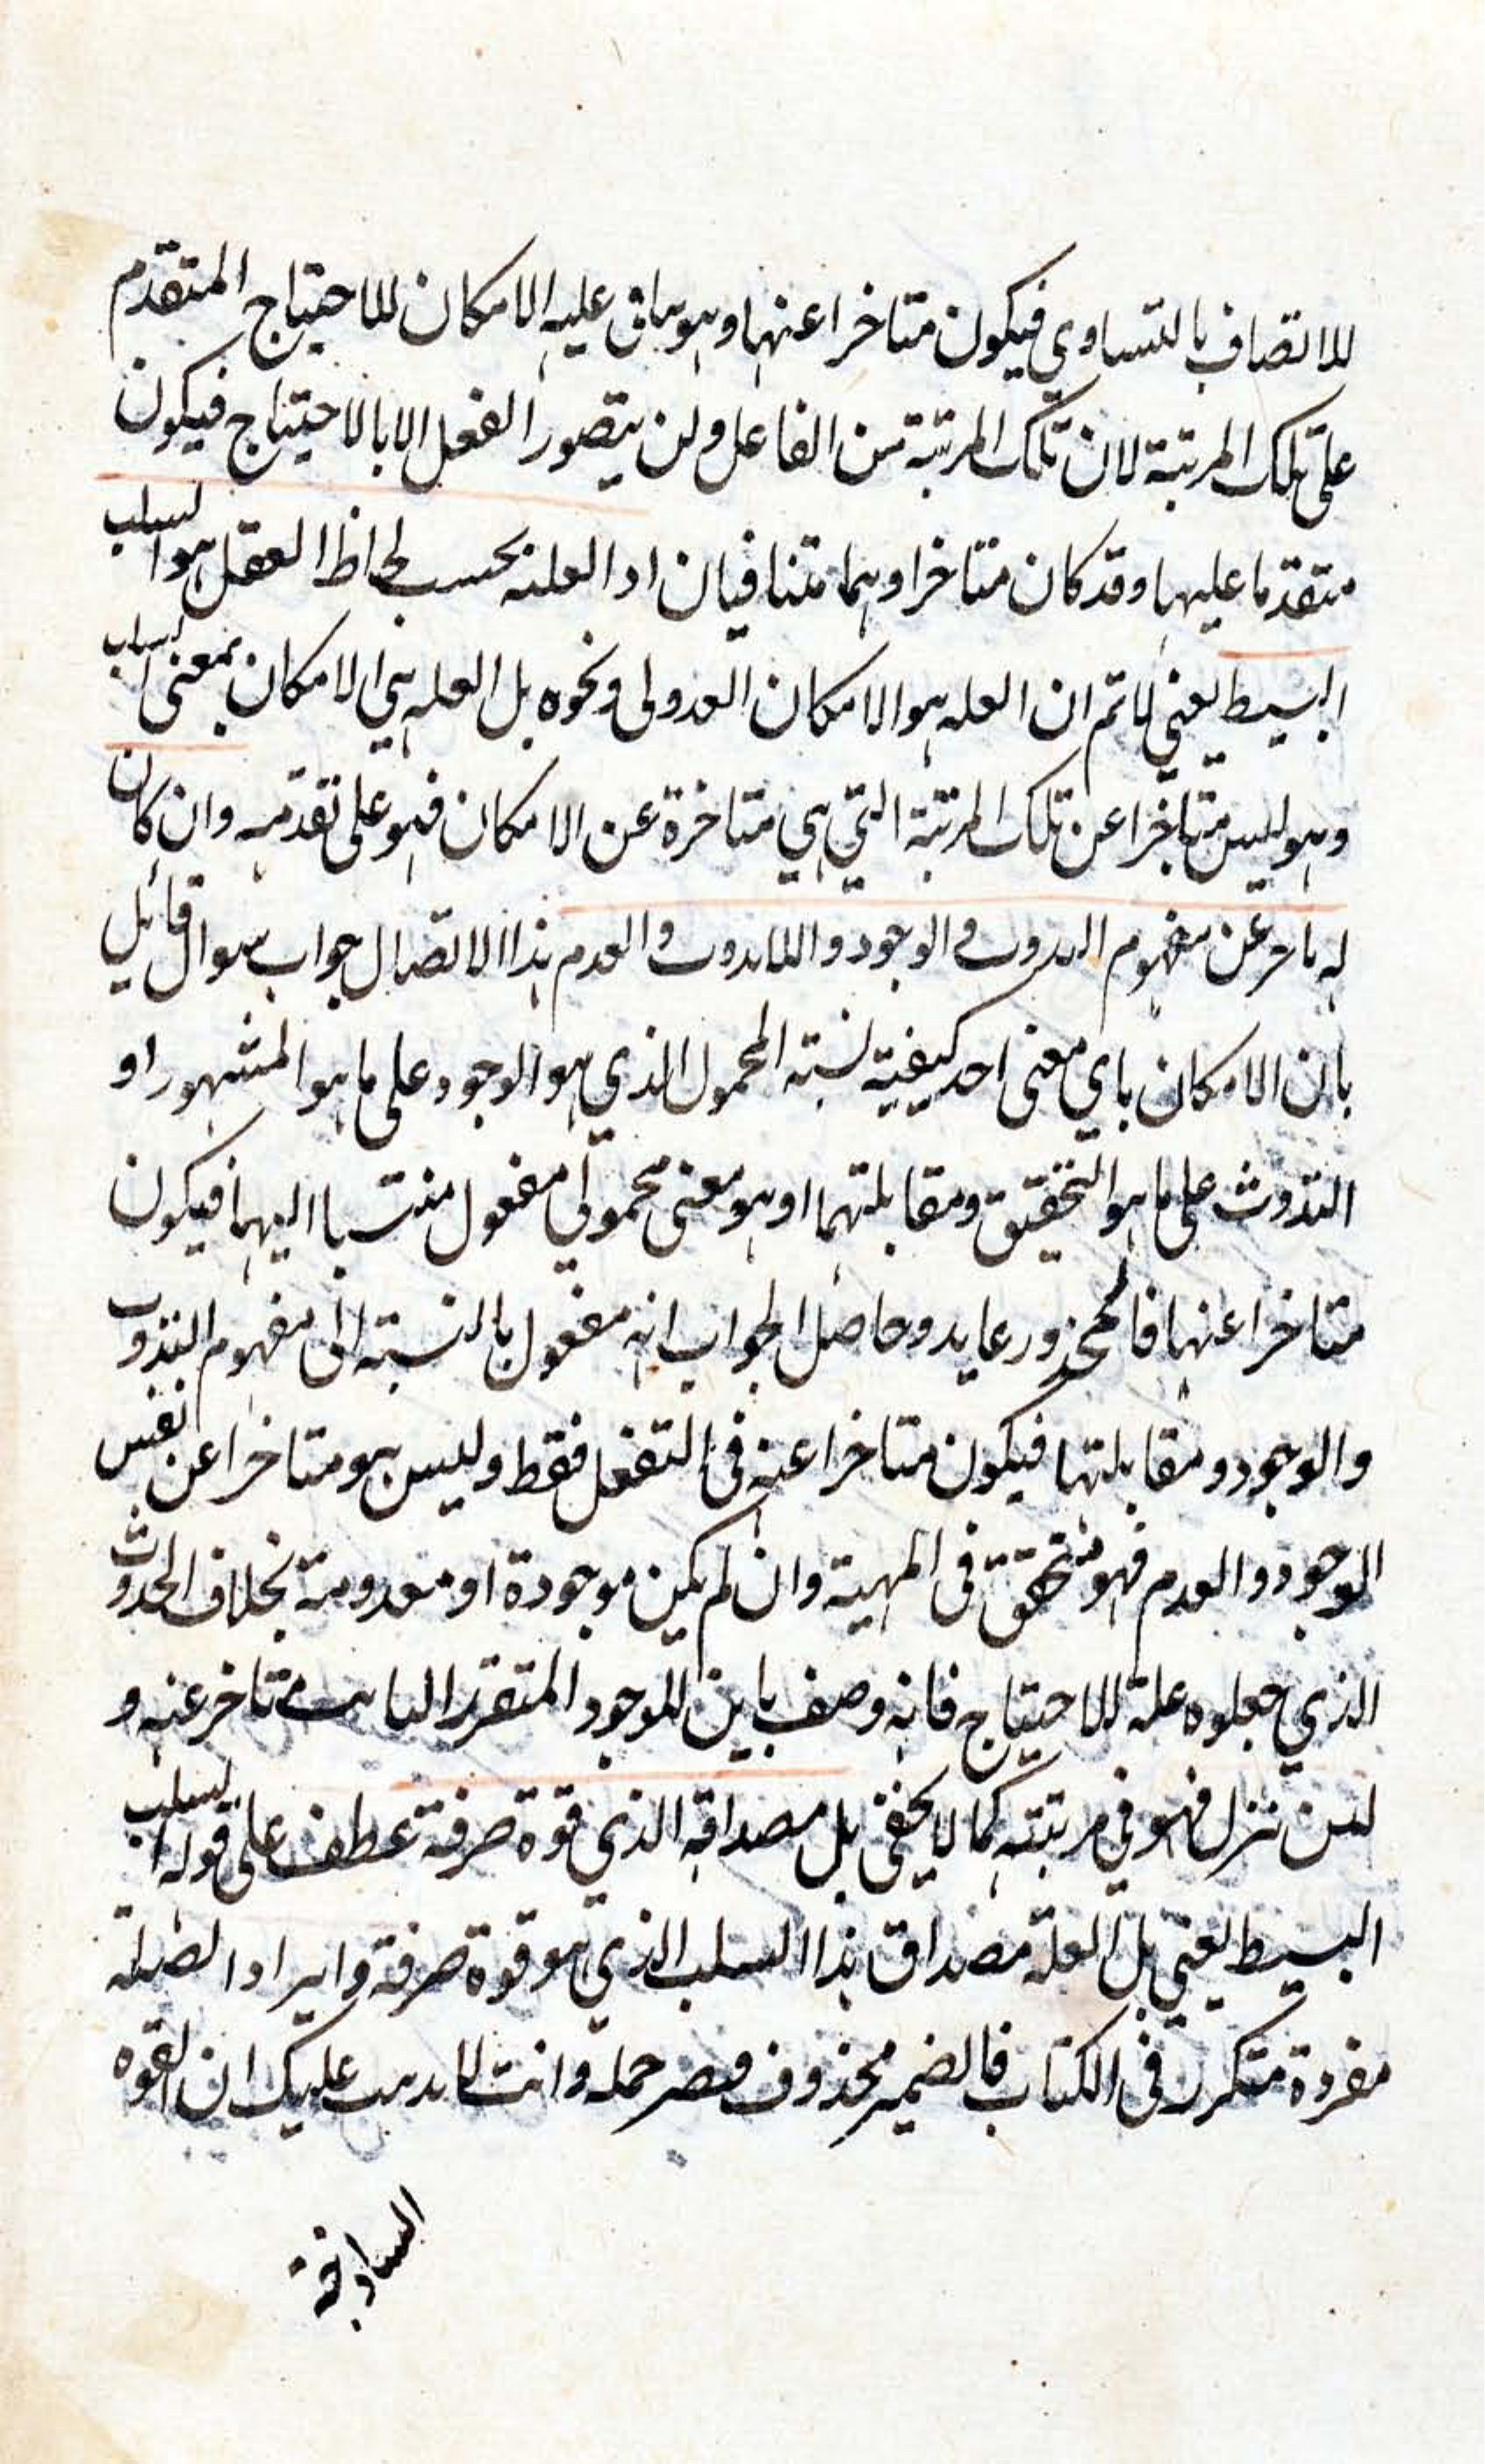 للاتصاف بالتساوي فيكون متاخرا عنها وهو عليه الامكان للاحتياج المتقدم
على تلك المرتبة لان تلك المرتبة من الفاعل ولن يتصور الفعل الا بالاحتياج فيكون
متقدما عليها وقد كان متاخرا وهما متنافيان اد العلة بحسب لحاظ العقل هو السلب
البسيط يعني لا تم ان العله هو الامكان العدولى ونحوه بل العله هي الامكان بمعنى السلب
وهو ليس متاخرا عن تلك المرتبة التي هي متاخرة عن الامكان فهو على تقدمه وان كان
له تاخر عن مفهوم الوجود والعدم هذا الاتصال جواب سوال قائل
بان الامكان باي معنى احد كيفية نسبة المحمول الذي هو الوجود على ما هو المشهور او
التذوت على ما هو التحقيق ومقابلتهما او هو معنى محمولي مفعول منتسبا اليهما فيكون
متاخرا عنها فالمحذور عايد وحاصل الجواب انه مفعول بالنسبة الى مفهوم التذوت
والوجود ومقابلتها فيكون متاخرا عنه فى التفعل فقط وليس هو متاخرا عن نفس
الوجود والعدم فهو متحقق فى المهية وان لم يكن موجودة او معدومة بخلاف الحدوث
الذي جعلوه علة للاحتياج فانه وصف باين للموجود المتقرر تاخر عنه و
لئن تنزل فهو في مرتبته كما لا يخفى بل مصداقه الذي قوة صرفة عطف على قوله السلب
البسيط يعني بل العلة مصداق هذا السلب الذي هو قوة صرفة وايراد الصلة
مفردة متكرر فى الكتاب فالضمير محذوف حمله وانت لا عليك ان القوه
الساذجة